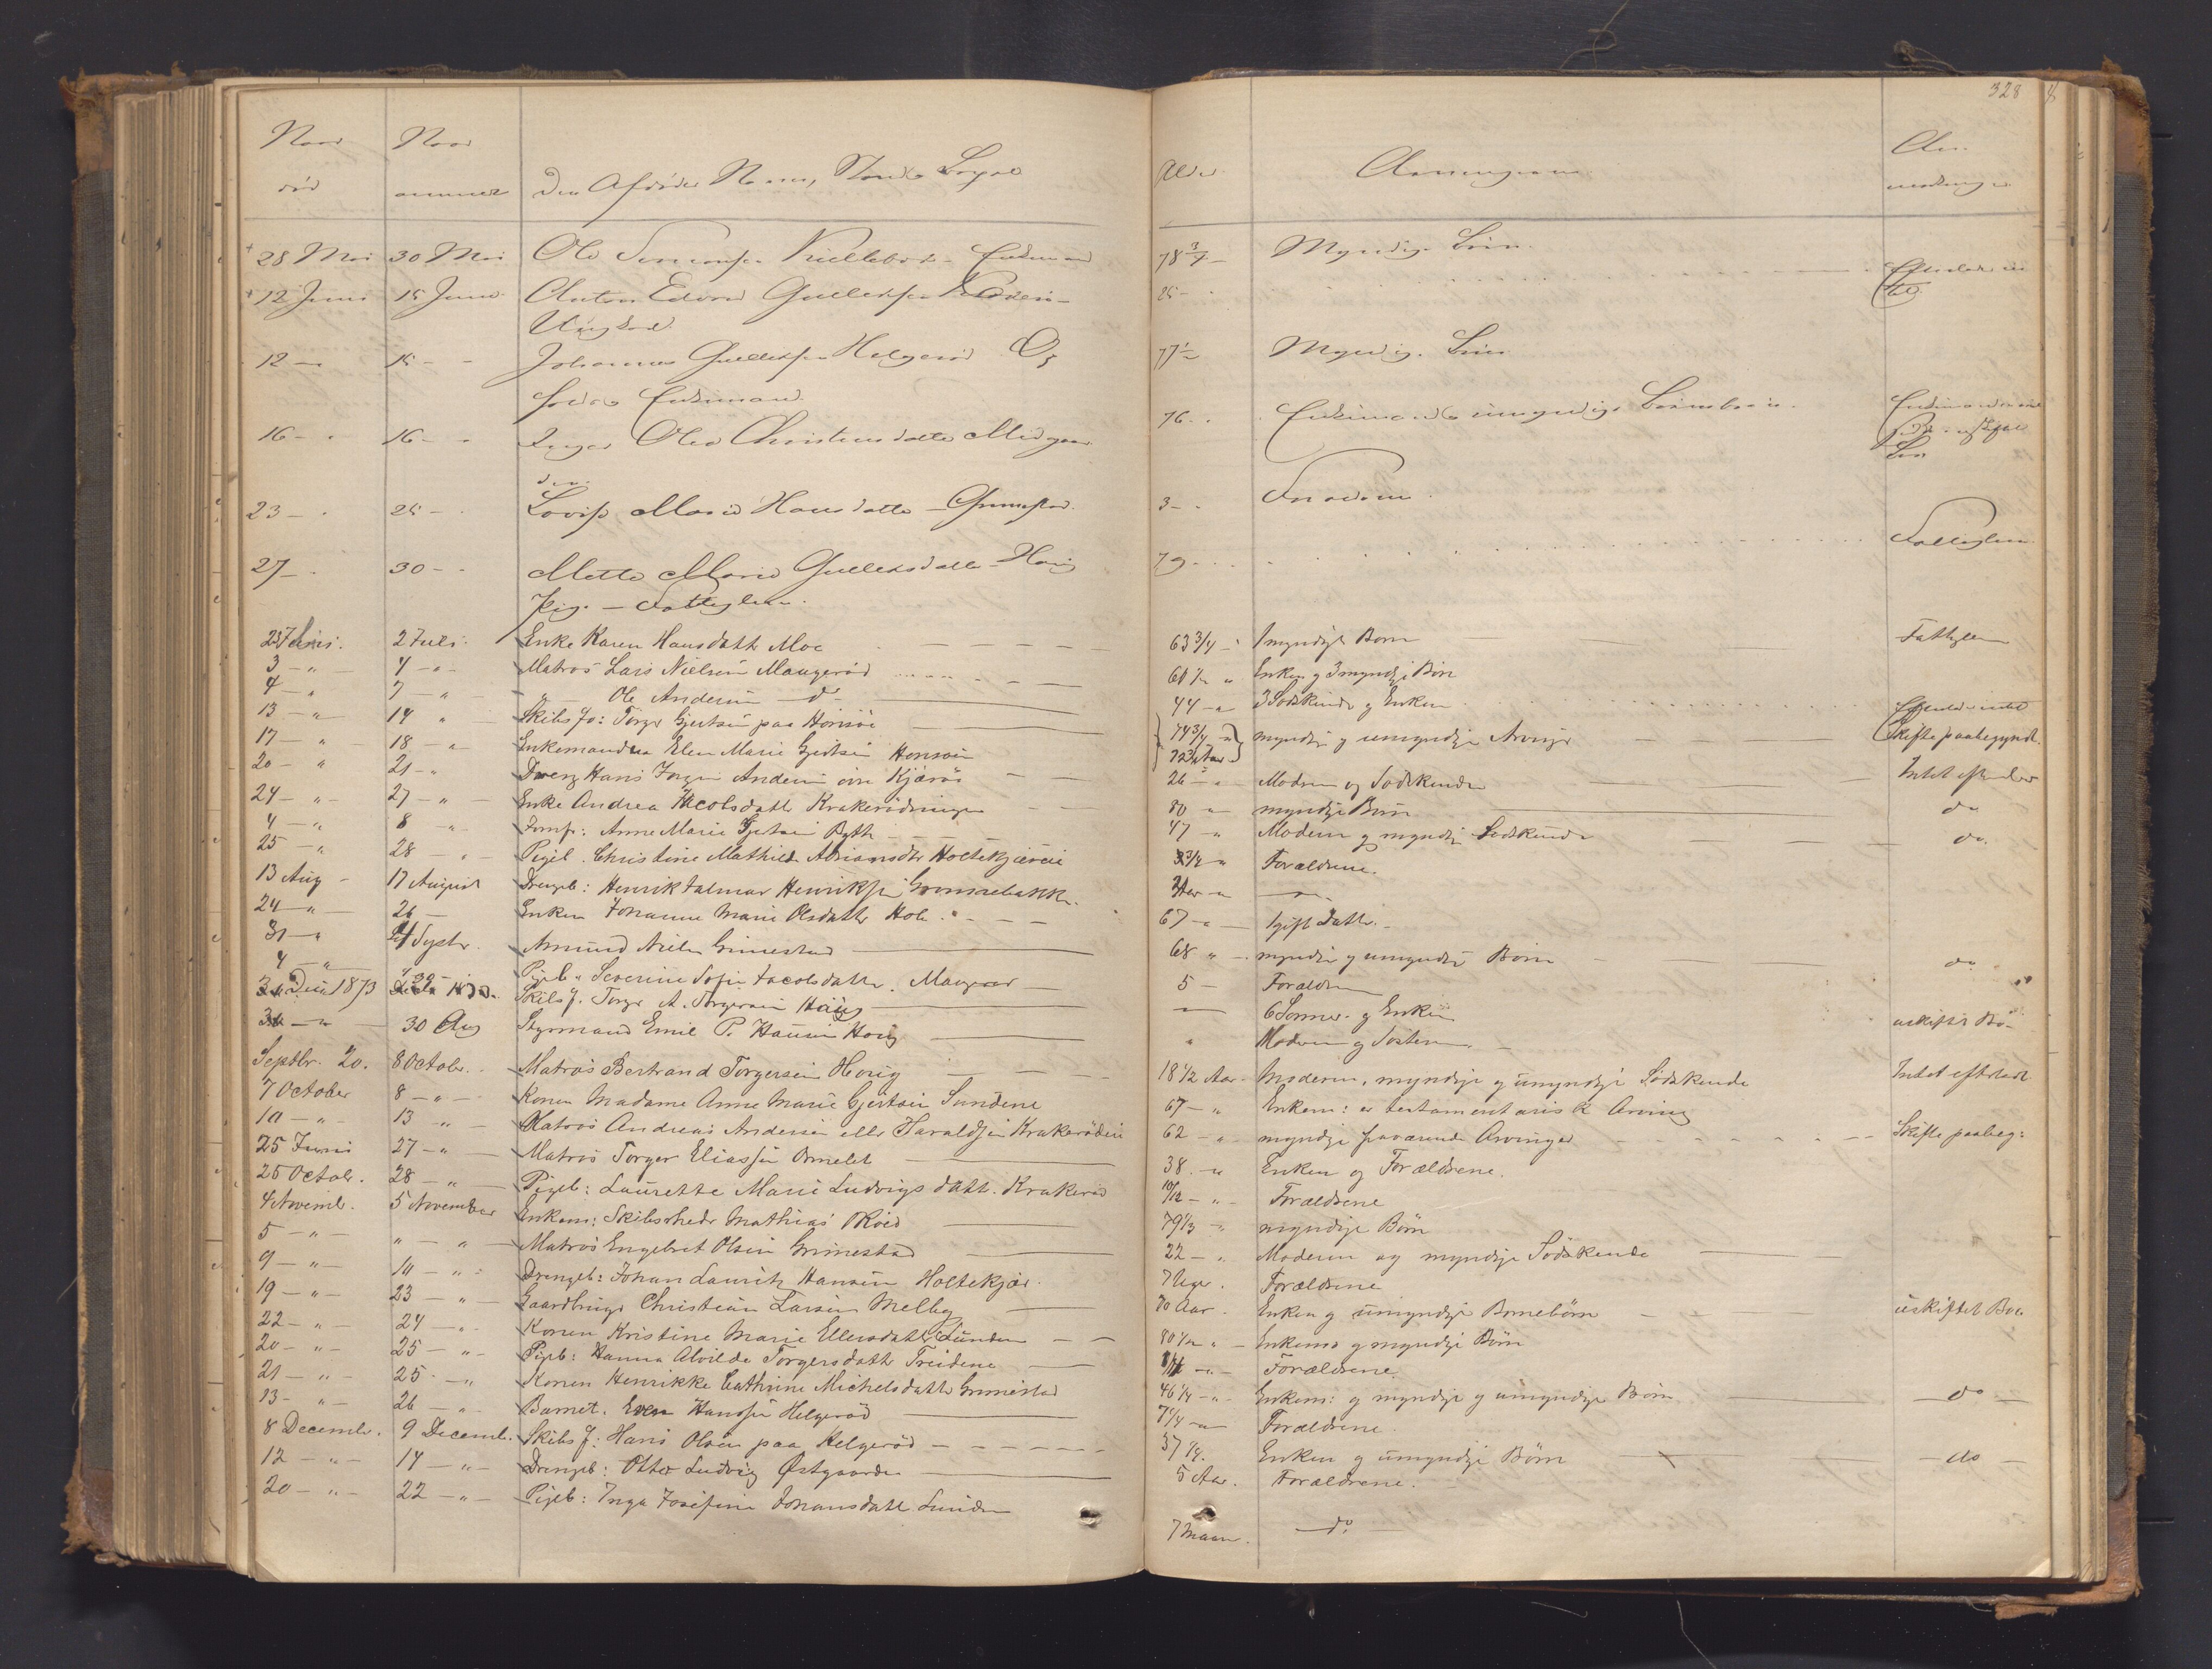 328
Naar død
Naar anmeldt
Den Afdødes Navn, Stand & Bopæl
Alder
Arvingerne
Anmærkninger
28 Mai 30 Mai Ole Simonsen Enkemand 78 3/4 Myndige Børn
12 Juni 15 Juni Anton Edvard Gulleksen 25
Ungkarl
12 — 15 — Johannes Gulleksen Helgerød 77 1/2 Myndige Børn
Enkemand
16 — 16 — Inger Olea Christensdatter Midgaarden 76 Enkemand & umyndige Børnebørn
23 — 25 — Lovise Marie Hansdatter Grimestad 3 — Forældrene
27 — 30 — Mette Marie Gulleksdatter Houg 79 Fattiglem
Pige — Fattiglem
23 Juni 2 Juli Enke Karen Hansdatter Moe 63 3/4 1 myndigt Barn Fattiglem
3 — " 4 — " Matros Lars Nielsen Maugerød 61 1/2 " Enken og 3 myndige Børn
4 — " 7 — " " Ole Andersen do 44 — " 3 Sødskende og Enken
13 — " 14 " Skibsf: Torger Gjertsen paa Honsøe 74 3/4 myndige og umyndige Arvinger Skifte paabegyndt
17 — " 18 — " Enkemandens Elen Marie Gjertsen Honsøe
20 — " 21 — " Dreng Hans Jørgen Andersen øvre Kjærøs 26 — " Moderen og Sødskende Intet efterlat
24 — " 27 — " Enke Andrea Jacobsdatter Krakerødningen 80 " myndige Børn do
4 — " 8 — " Jomfr: Anne Marie Gjertsen 47 — " Moderen og myndige Sødskende do
25 — " 28 — " Pigeb. Christine Mathilde Adriansdtr Holtekjæreie 3/4 " Forældrene.
13 Aug — 17 August Drengeb: Henrik Halmar Henriksen
24 — " 26 — Enken Johanne Marie Olsdatter Hole 67 — " 1 gift Datter.
31 — " 4 Septr. Amund Nielsen Grimestad 68 " myndige og umyndige Børn do
4 — " Pigeb. Severine Sofie Jacobsdatter. Maugerød 5 — Forældrene
Deci 1873 Skibsf. Torger A. Torgersen Houg 6 Sønner og Enken
30 Aug Styrmand Emil P. Hansen Houg " Moderen og Søsteren
Septbr. 20. 8 October. Matros Bertrand Torgersen Houg 18 1/2 Aar Moderen, myndige og umyndige Sødskende Intet efterladt
7 October 8 — " — Konen Madame Anne Marie Gjertsen Sundene 67 — " Enkem: er testamentarisk Arving
10 — " — 13 " — Matros Andreas Andersen eller Haraldsen Krakerødeie 62 — " myndige fraværende Arvinger Skifte paabeg:
25 Juni 27 — " — Matros Torger Eliassen Ormelet 38. — " Enken og Forældrene.
25 Octobr. 28 — " — Pigeb: Laurette Marie Ludvigs datt. Krakerød 10/12 — " — Forældrene
4 Novemb. 5 November Enkem: Skibsrheder Mathias Røed 79 1/3 — " myndige Børn
5 — " — " — " — Matros Engebret Olsen Grimestad 22 — " Moderen og myndige Sødskende
9 — " — 10 — " — Drengeb: Johan Lauritz Hansen Holtekjær. 7 Uger. Forældrene
19 — " — 23 — " — Gaardbruger Christian Larsen Melby 70 Aar Enken og umyndige Børnebørn uskiftet Boe
22 — " — 24 — " — Konen Kristine Marie Ellevsdatter Lunden 80 1/2 " Enkem: og myndige Børn
20 — " — 25 — " — Pigeb: Hanna Alvilde Torgersdatter Treidene Forældrene
21 — " — 25 — " Konen Henrikke Cathrine Michelsdatter Grimestad 46 1/4 — " — Enkem: og myndige og umyndige Børn do
13 — " — 26 — " — Barnet. Even Hanssen Helgerød 7 1/4 — " Forældrene.
8 Decembr. 9 Decemb. Skibsf: Hans Olsen paa Helgerød 37 1/4. Enken og umyndige Børn do
12 — " — 14 — " — Drengeb: Otto Ludvig Østgaarden 5 Aar. Forældrene.
20 — " — 22 — " — Pigeb: Inga Josefine Johansdatt Lunden 7 Maan. do